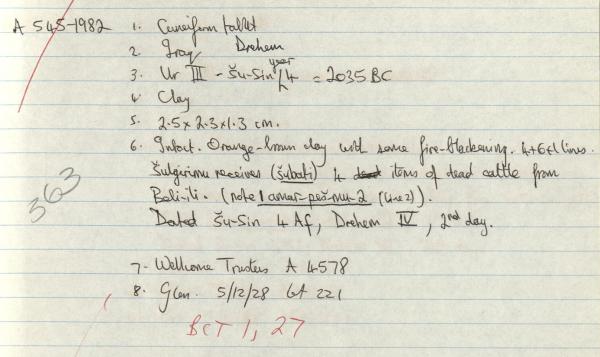 A 545-1982 1. Cuneiform tablet
2. Iraq Drehem
3. Ur III - Šu-Sin year 4 = 2035 BC
4. Clay
5. 2.5 x 2.3 x 1.3 cm.
6. Intact. Orange-brown clay with some fire-blackening. 4+6+1 lines.
Šulgirimu receives (šubati) 4 dead items of dead cattle from
Beli-ili. (note 1 amar-peš-mu-2 (line 2)).
Dated Šu-Sin 4 Af, Drehem IV, 2nd day.
363
7. Wellcome Trustees A 4578
8. Glen. 5/12/28 lot 221
BCT 1, 27